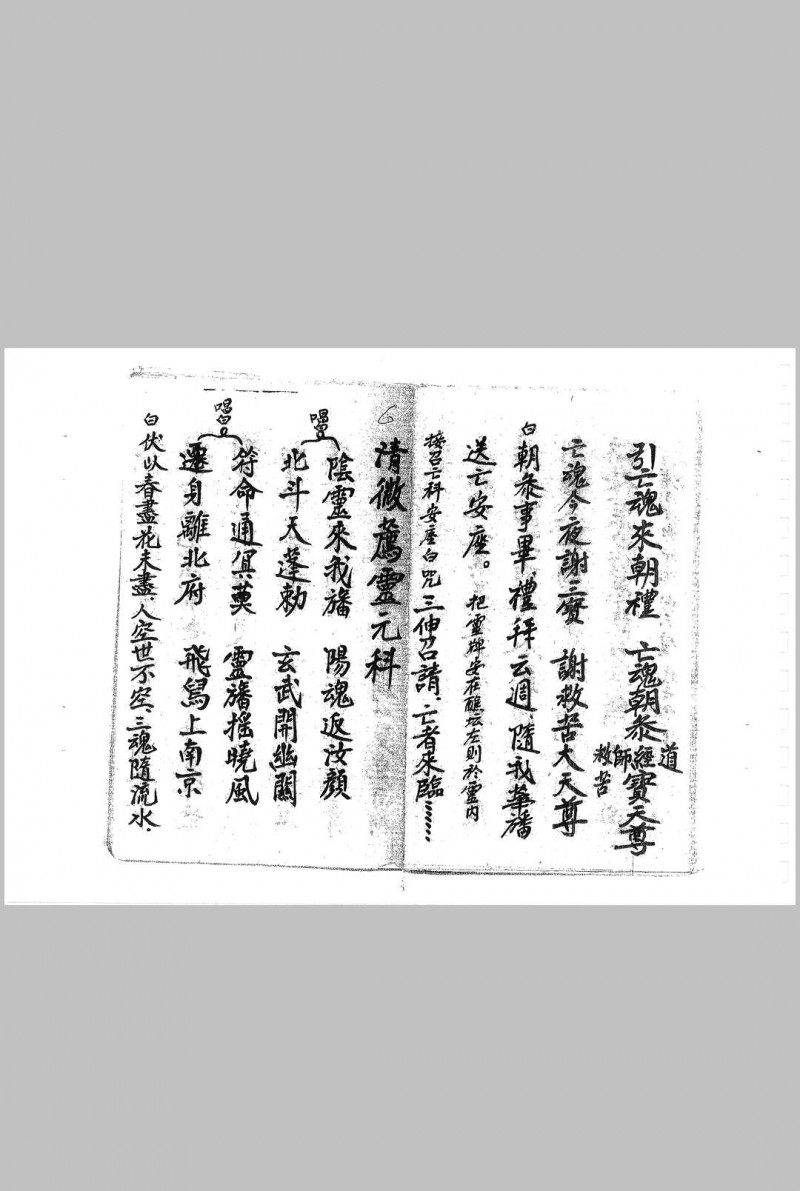 引亡魂來朝禮　亡魂朝叅道經師寶天尊
救苦
亡魂今夜謝三寶　謝救苦大天尊
白朝叅事畢、禮拜云週、隨我華旛
送亡安座。　把靈牌安在醮坛左則於靈内
接召亡科安座白咒三伸召請、亡者來臨……
6
清微薦靈元科
唱　陰靈來我旛　陽魂返汝顏
北斗天蓬勅　玄武開幽關
唱　符命通　靈旛搖曉風
遷身離北府　飛舃上南京
白伏以春盡花未盡、人空世不空、三魂隨流水、